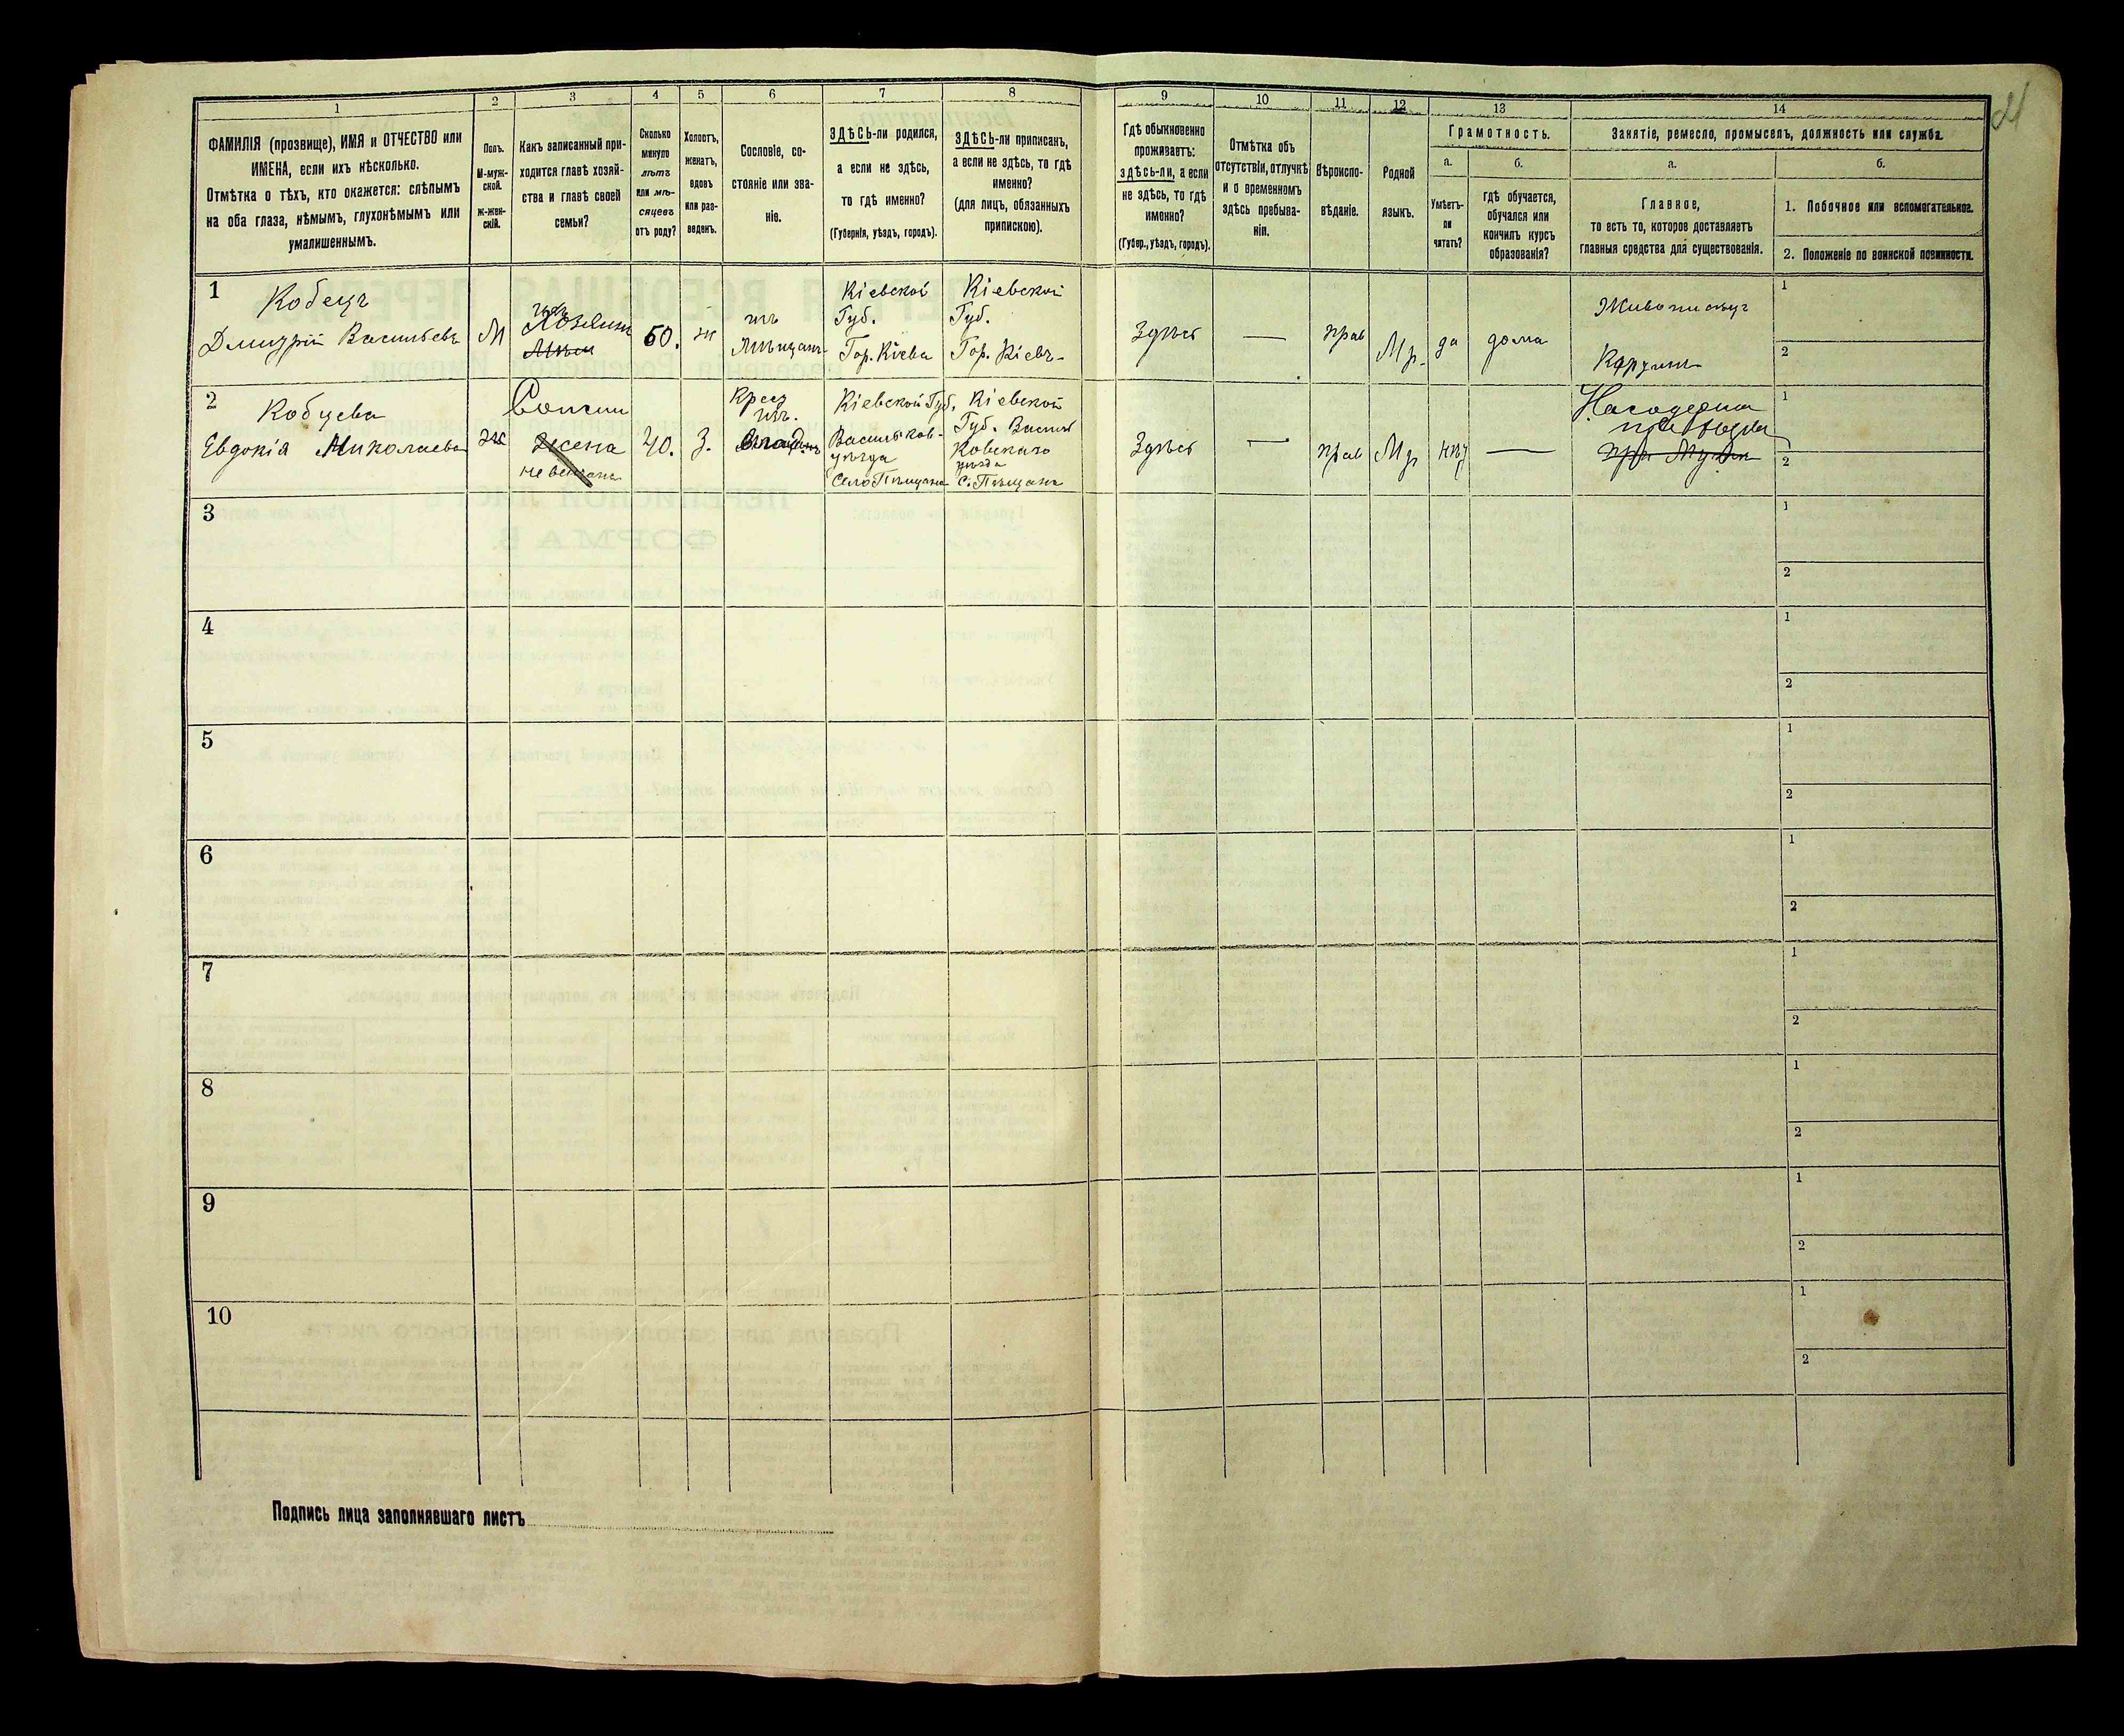 1
2
3
4
5
6
7
8
9
10
11
12
13
14
ФАМИЛІЯ (прозвище), ИМЯ и ОТЧЕСТВО или
ИМЕНА, если ихъ нѣсколько.
Отмѣтка о тѣхъ, кто окажется: слѣпымъ
на оба глаза, нѣмымъ, глухонѣмымъ или
умалишеннымъ.
Полъ.
М-муж-
ской.
Ж-жен-
скій.
Какъ записанный при-
ходится главѣ хозяй-
ства и главѣ своей
семьи?
Сколько
минуло
лѣтъ
или мѣ-
сяцевъ
отъ роду?
Холостъ,
женатъ,
вдовъ
или раз-
веденъ.
Сословіе, со-
стояніе или зва-
ніе.
ЗДѢСЬ-ли родился,
а если не здѣсь,
то гдѣ именно?
(Губернія, уѣздъ, городъ).
ЗДѢСЬ-ли приписанъ,
а если не здѣсь, то гдѣ
именно?
(для лицъ, обязанныхъ
припискою).
Гдѣ обыкновенно
проживаетъ:
здѣсь-ли, а если
не здѣсь, то гдѣ
именно?
(Губер., уѣздъ, городъ).
Отмѣтка объ
отсутствіи, отлучкѣ
и о временномъ
здѣсь пребыва-
ніи.
Вѣроиспо-
вѣданіе.
Родной
языкъ.
Грамотность.
а.
б.
Умѣетъ-
ли
читать?
гдѣ обучается,
обучался или
кончилъ курсъ
образованія?
Занятіе, ремесло, промыселъ, должность или служба.
а.
б.
Главное,
то есть то, которое доставляетъ
главныя средства для существованія.
1. Побочное или вспомогательное.
2. Положеніе по воинской повинности.
1
Кобецъ
Дмитрій Васильевъ
М
Хозяинъ
60.
ж
Мѣщанъ
Кіевской
Губ.
Гор. Кіева
Кіевской
Губ.
Гор. Кіевъ
Здѣсь
—
прав
Мр.
да
дома
Живописецъ
Картинъ
1
2
2
Кобцева
Евдокія Николаева
ж
Жена
40.
З.
Крест
Кіевской Губ.
Васильков-
уѣзда
Село Пѣщана
Кіевской
Губ. Василь
Ковскаго
уѣзда
С. Пѣщана
Здѣсь
—
прав
Мр
нѣт
—
при Мужѣ
1
2
3
1
2
4
1
2
5
1
2
6
1
2
7
1
2
8
1
2
9
1
2
10
1
2
Подпись лица заполнявшаго листъ